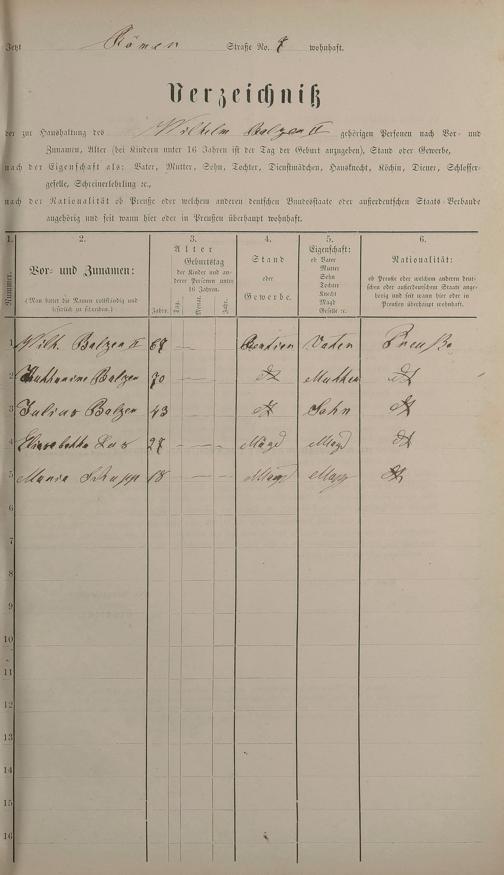 Jetzt Römer Straße No. 8 wohnhaft.
Verzeichniß
der zur Haushaltung des Wilhelm Balzer II gehörigen Personen nach Vor- und
Zunamen, Alter (bei Kindern unter 16 Jahren ist der Tag der Geburt anzugeben), Stand oder Gewerbe,
nach der Eigenschaft als: Vater, Mutter, Sohn, Tochter, Dienstmädchen, Hausknecht, Köchin, Diener, Schlosser-
geselle, Schreinerlehrling ꝛc.,
nach der Nationalität ob Preuße oder welchem anderen deutschen Bundesstaate oder außerdeutschen Staats-Verbande
angehörig und seit wann hier oder in Preußen überhaupt wohnhaft.
1. 2. 3. 4. 5. 6.
Nummer.
Vor- und Zunamen:
(Man bittet die Namen vollständig und
leserlich zu schreiben.)
Alter
Geburtstag
der Kinder und an-
derer Personen unter
16 Jahren.
Jahre. Tag. Monat. Jahr.
Stand
oder
Gewerbe.
Eigenschaft:
ob Vater
Mutter
Sohn
Tochter
Knecht
Magd
Geselle ꝛc.
Nationalität:
ob Preuße oder welchem anderen deut-
schen oder außerdeutschen Staate ange-
hörig und seit wann hier oder in
Preußen überhaupt wohnhaft.
1 Wilh. Balzer II 69 — Rentier Vater Preuße
2 Katharine Balzer 70 — Mutter
3 Julius Balzer 43 — Sohn
4 Elisabetha 27 — — — Magd Magd
5 Maria Schupp 18 — — Magd Magd
6
7
8
9
10
11
12
13
14
15
16